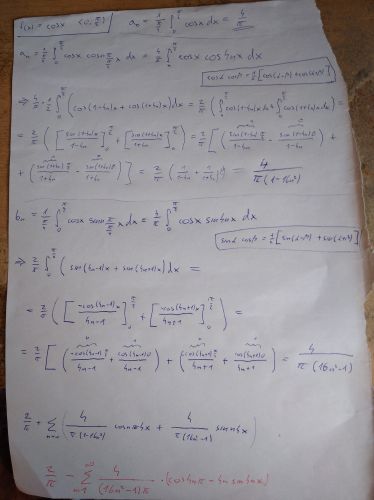 f(x) = cosx (0, π/2) a₀ = 1/(π/4) ∫₀^(π/2) cosx dx = 4/π
aₙ = 1/(π/4) ∫₀^(π/2) cosx cos nπ/(π/4) x dx = 4/π ∫₀^(π/2) cosx cos4nx dx
cosα cosβ = 1/2 [cos(α-β) + cos(α+β)]
⇒ 4/π · 1/2 ∫₀^(π/2) (cos(1-4n)x + cos(1+4n)x) dx = 2/π (∫₀^(π/2) cos(1-4n)x dx + ∫₀^(π/2) cos(1+4n)x dx) =
= 2/π ([sin(1-4n)x/(1-4n)]₀^(π/2) + [sin(1+4n)x/(1+4n)]₀^(π/2)) = 2/π [(sin(1-4n)π/2/(1-4n) - sin(1-4n)0/(1-4n)) +
+ (sin(1+4n)π/2/(1+4n) - sin(1+4n)0/(1+4n))] = 2/π (1/(1-4n) + 1/(1+4n)) = 4/(π(1-16n²))
bₙ = 1/(π/4) ∫₀^(π/2) cosx sin nπ/(π/4) x dx = 4/π ∫₀^(π/2) cosx sin4nx dx
sinα cosβ = 1/2 [sin(α-β) + sin(α+β)]
⇒ 2/π ∫₀^(π/2) (sin(4n-1)x + sin(4n+1)x) dx =
= 2/π ([-cos(4n-1)x/(4n-1)]₀^(π/2) + [-cos(4n+1)x/(4n+1)]₀^(π/2)) =
= 2/π [(-cos(4n-1)π/2/(4n-1) + cos(4n-1)0/(4n-1)) + (-cos(4n+1)π/2/(4n+1) + cos(4n+1)0/(4n+1))] = 4/(π(16n²-1))
2/π + ∑ (4/(π(1-16n²)) cos 4x + 4/(π(16n²-1)) sin4nx)
2/π - ∑ₙ₌₁^∞ 4/((16n²-1)π) · (cos4nπ - 4n sin4nx)